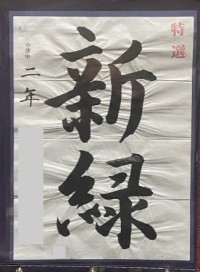 特選
新緑
二年